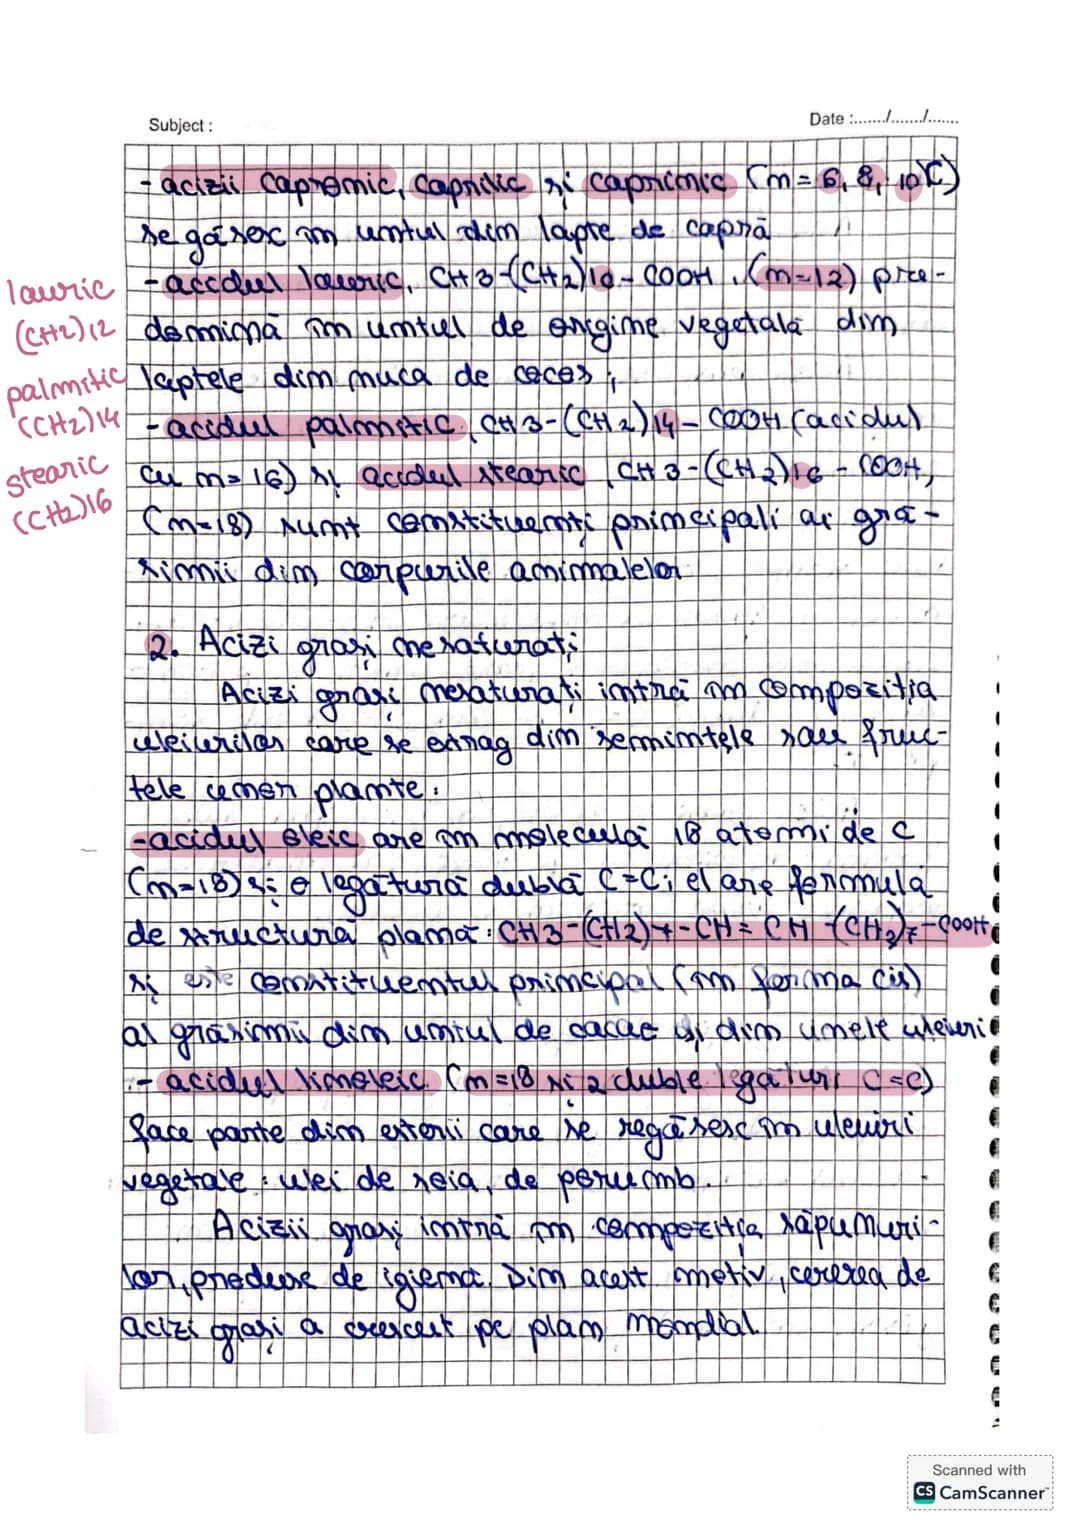 Subject :
Date :......./......./.......
- acizii capronic, caprilic și caprinic (n = 6, 8, 10 C)
se găsesc în untul din lapte de capră
- acidul lauric, CH3-(CH2)10-COOH, (n=12) pre-
domină în untul de origine vegetală din
laptele din nuca de cocos;
- acidul palmitic, CH3-(CH2)14-COOH (acidul
cu n=16) și acidul stearic, CH3-(CH2)16-COOH,
(n=18) sunt constituenți principali ai gră-
simii din corpurile animalelor
lauric
(CH2)12
palmitic
(CH2)14
stearic
(CH2)16
2. Acizi grași nesaturați
Acizi grași nesaturați intră în compoziția
uleiurilor care se extrag din semințele sau fruc-
tele unor plante:
- acidul oleic are în moleculă 18 atomi de C
(n=18) și o legătură dublă C=C; el are formula
de structură plană: CH3-(CH2)7-CH=CH-(CH2)7-COOH
și este constituentul principal (în forma cis)
al grăsimii din untul de cacao și din unele uleiuri
- acidul linoleic (n=18 și 2 duble legături C=C)
face parte din esterii care se regăsesc în uleiuri
vegetale: ulei de soia, de porumb.
Acizii grași intră în compoziția săpunuri-
lor, produse de igienă. Din acest motiv, cererea de
acizi grași a crescut pe plan mondial.
Scanned with
CS CamScanner